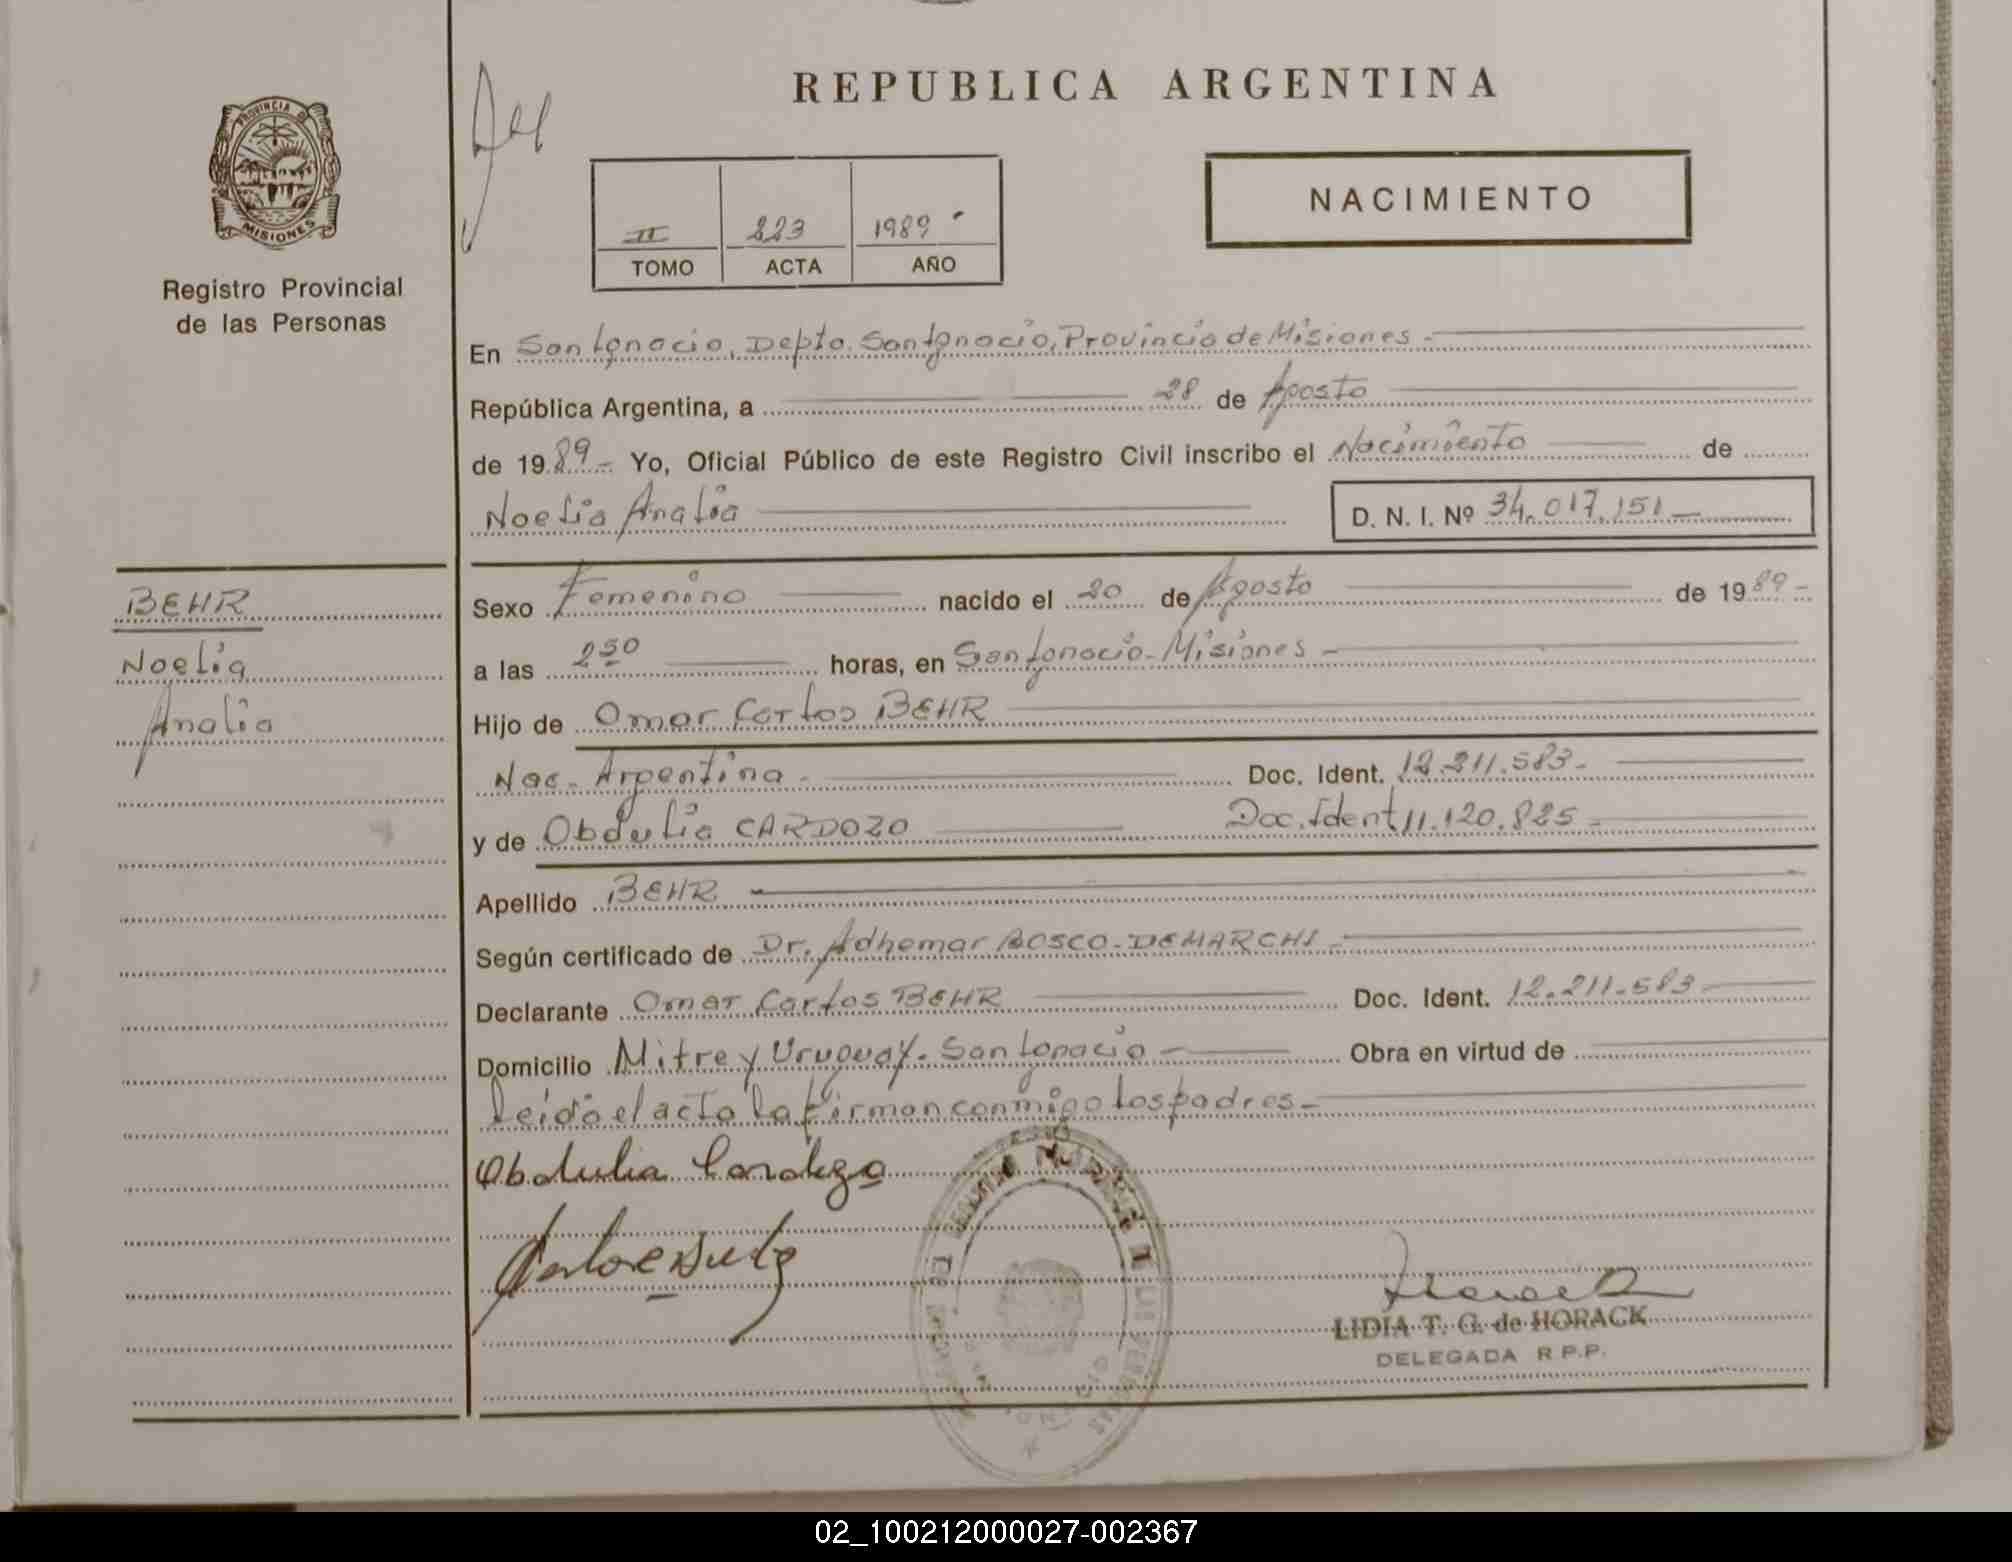 REPUBLICA ARGENTINA
PROVINCIA DE
MISIONES
Registro Provincial
de las Personas
II 223 1989
TOMO ACTA AÑO
NACIMIENTO
En San Ignacio, Depto. San Ignacio, Provincia de Misiones -
República Argentina, a 28 de Agosto
de 1989.- Yo, Oficial Público de este Registro Civil inscribo el Nacimiento de
Noelia Analia D. N. I. Nº 34.017.151 -
BEHR
Noelia
Analia
Sexo Femenino nacido el 20 de Agosto de 1989 -
a las 2 50 horas, en San Ignacio - Misiones -
Hijo de Omar Carlos BEHR
Nac. Argentina - Doc. Ident. 12.211.583 -
y de Obdulia CARDOZO Doc. Ident 11.120.825 -
Apellido BEHR -
Según certificado de Dr. Adhemar BOSCO - DEMARCHI -
Declarante Omar Carlos BEHR Doc. Ident. 12.211.583 -
Domicilio Mitre y Uruguay. San Ignacio - Obra en virtud de
Leido el acta la firman conmigo los padres -
Obdulia Cardozo
LIDIA T. G. de HORACK
DELEGADA R P.P.
02_100212000027-002367